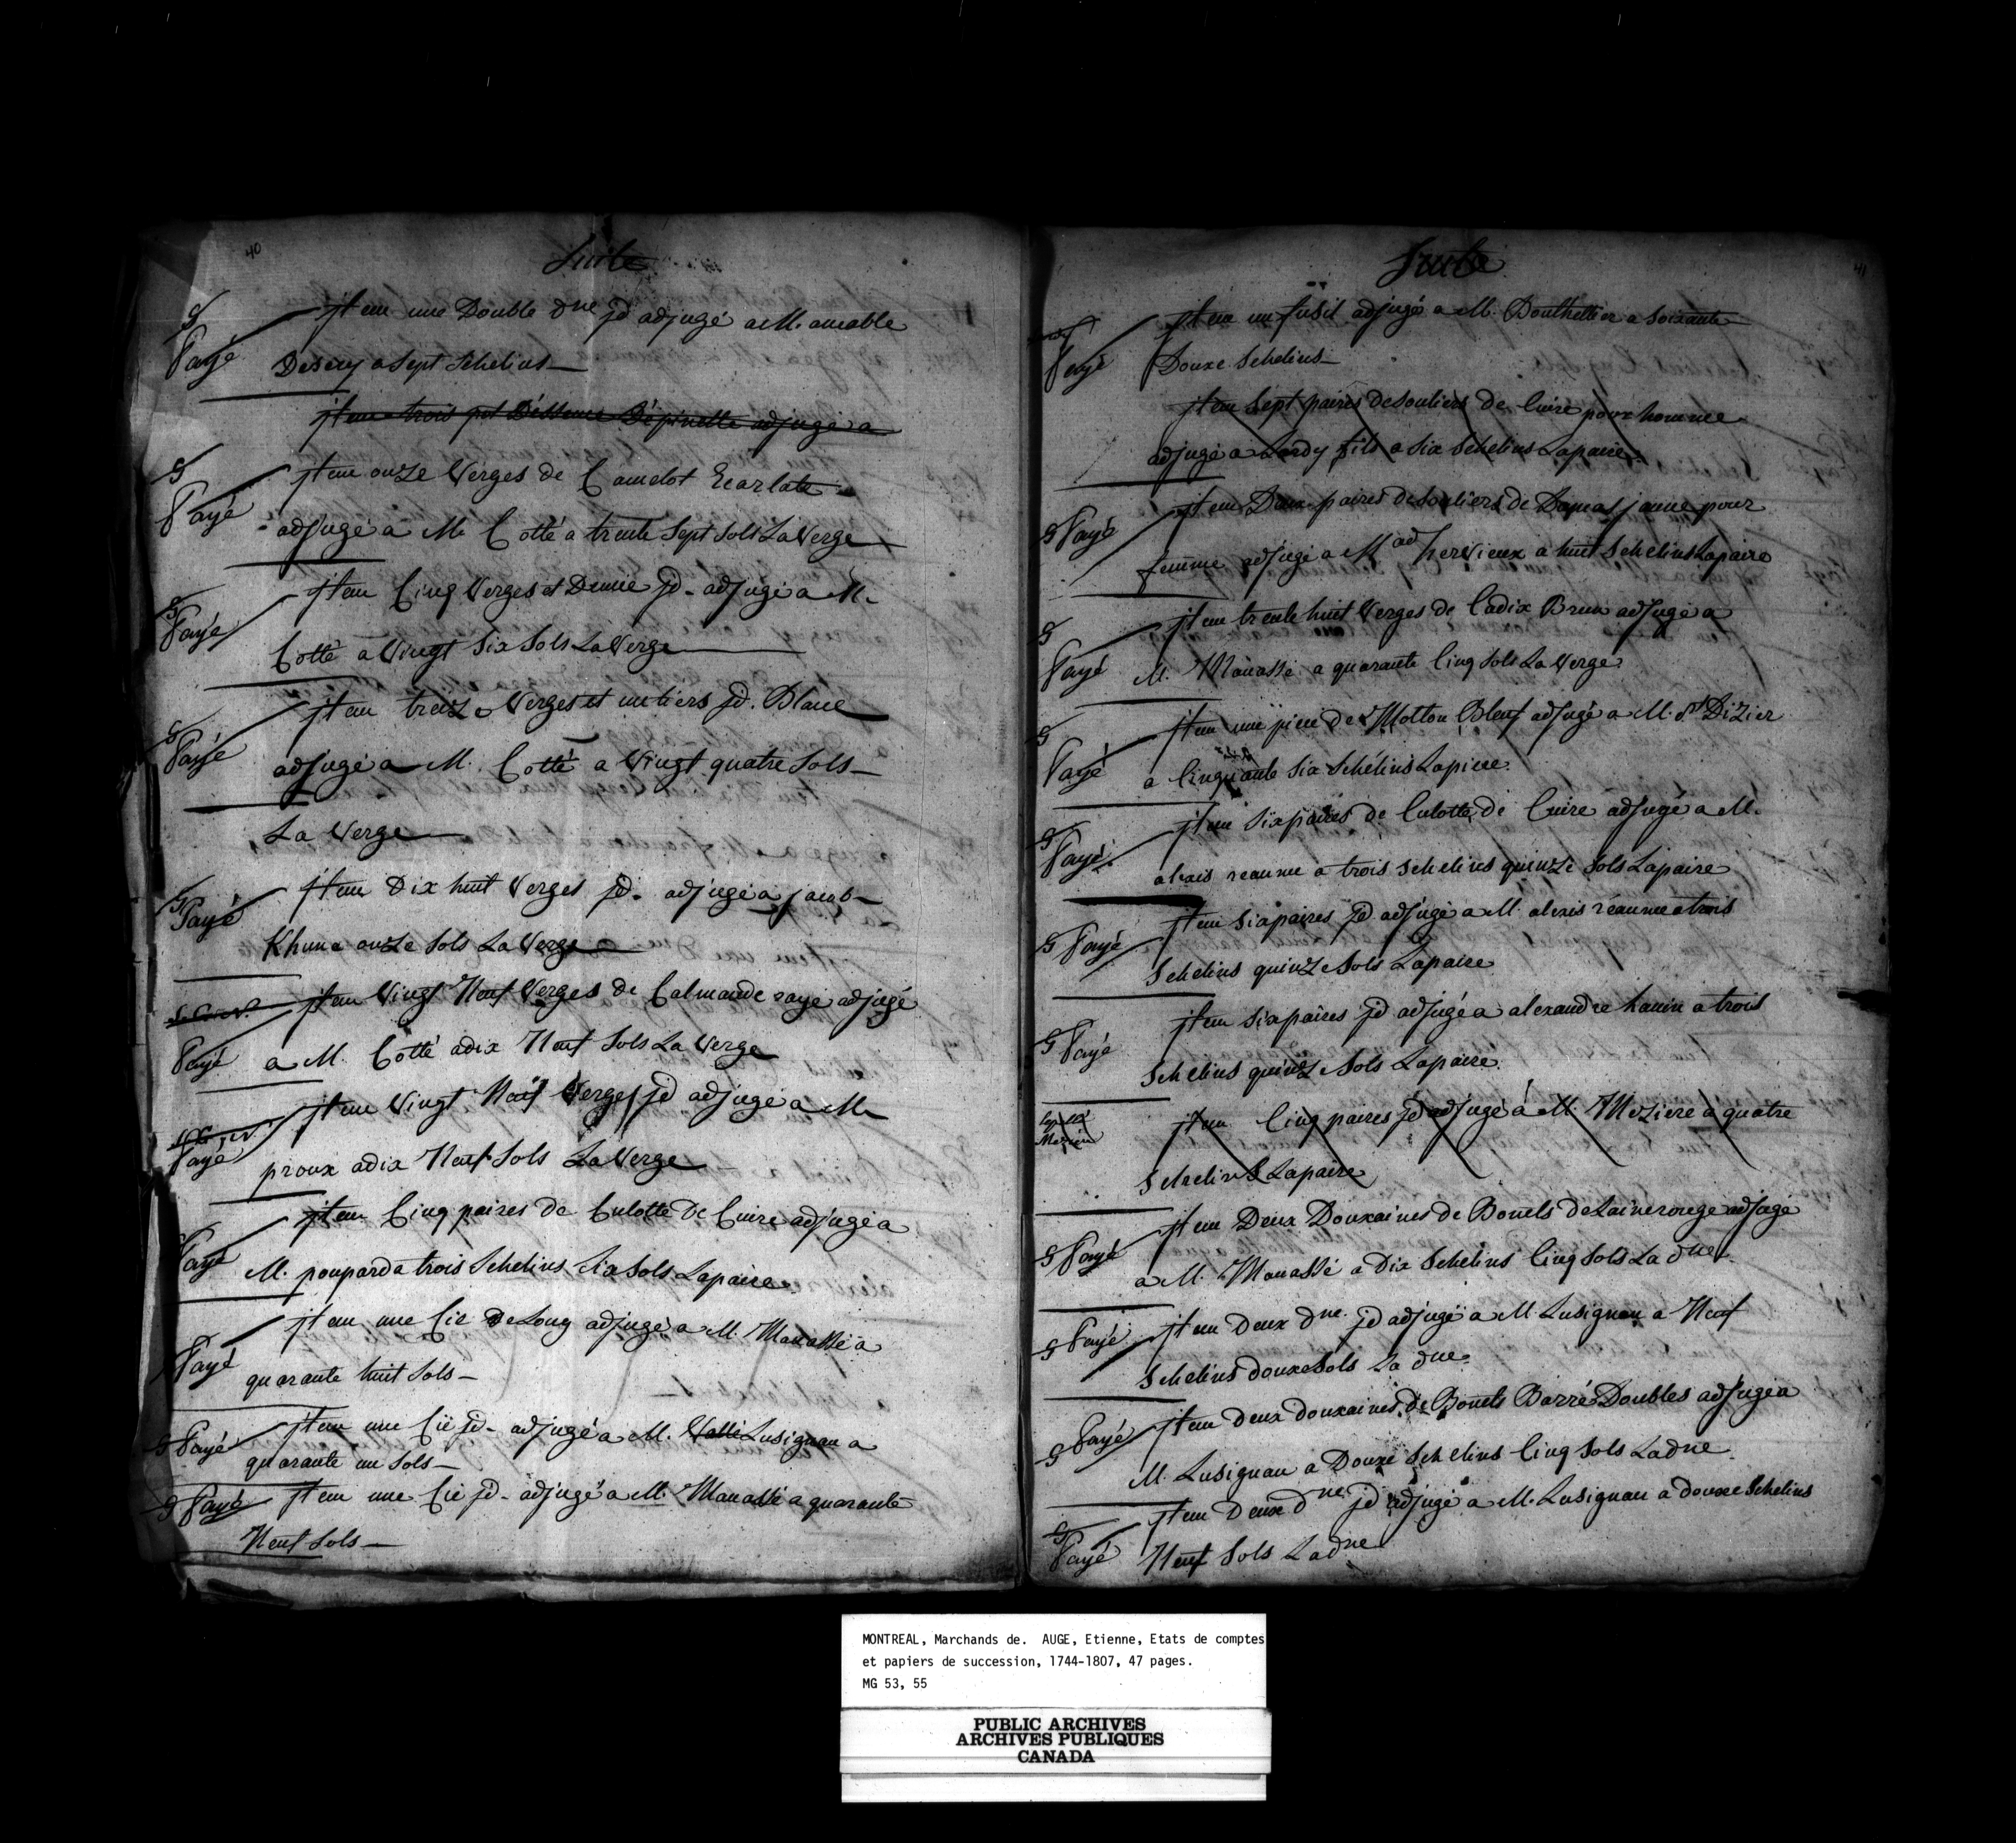 40
Suite
G
Payé
jtem une Double dne jd adjugé a M. amable
Desery a Sept Schelins
jtem trois pot Déssence Dépinette adjugé a
G
Payé
jtem onze Verges de Camelot Ecarlate
adjugé a M. Cotté a trente Sept Sols La Verge
G
Payé
jtem Cinq Verges et Demie jd. adjugé a M.
Cotté a Vingt Six Sols La Verge
G
Payé
jtem treize Verges et untiers jd. Blanc
adjugé a M. Cotté a Vingt quatre Sols
La Verge
G
Payé
jtem Dix huit Verges jd. adjugé a jacob
Khun a onze Sols La Verge
jtem Vingt Neuf Verges de Calmande rayé adjugé
Payé
a M. Cotté a dix Neuf Sols La Verge
jtem Vingt Neuf Verges jd adjugé a M.
Payé
proux a dix Neuf Sols La Verge
jtem Cinq paires de Culotte De Cuire adjugé a
Payé
M. poupard a trois Schelins Six Sols La paire
jtem une Cie De Long adjugé a M. Manassé a
Payé
quarante huit Sols
G Payé
jtem une Cie jd. adjugé a M. Lusignan a
quarante un Sols
G Payé
jtem une Cie jd. adjugé a M. Manassé a quarante
Neuf Sols
41
Suite
jtem un fusil adjugé a M. Bouthellier a Soixante
Payé
Douxe Schelins
jtem Sept paires de Souliers de Cuire pour homme
adjugé a Lardy fils a Six Schelins La paire
G Payé
jtem Deux paires de Souliers de Damas jaune pour
femme adjugé a Mad hervieux a huit Schelins La paire
G
Payé
jtem trente huit Verges de Cadix Brun adjugé a
M. Manassé a quarante Cinq Sols La Verge
G
Payé
jtem une piece de Molton Bleuf adjugé a M. St Dizier
a Cinquante Six Schélins La piece.
G
Payé
jtem Six paires de Culotte de Cuire adjugé a M.
alexis reaume a trois Schelins quinze Sols La paire
G Payé
jtem Six paires jd adjugé a M. alexis réaume a trois
Schelins quinze Sols La paire
G Payé
jtem Six paires jd adjugé a alexandre hanin a trois
Schelins quinze Sols La paire.
jtem Cinq paires jd adjugé á M. Meziere a quatre
Schelins La paire
G Payé
jtem Deux Douxaines de Bonets de Laine rouge adjugé
a M. Manassé a Dix Schelins Cinq Sols La dne.
G Payé
jtem Deux dne. jd adjugé a M. Lusignan a Neuf
Schelins douxe Sols La dne.
G Payé
jtem Deux douxaines de Bonets Barré Doubles adjugé a
M. Lusignan a Douxe Schelins Cinq Sols La dne
jtem Deux dne jd adjugé a M. Lusignan a douxe Schelins
G
Payé
Neuf Sols La dne
MONTREAL, Marchands de. AUGE, Etienne, Etats de comptes
et papiers de succession, 1744-1807, 47 pages.
MG 53, 55
PUBLIC ARCHIVES
ARCHIVES PUBLIQUES
CANADA